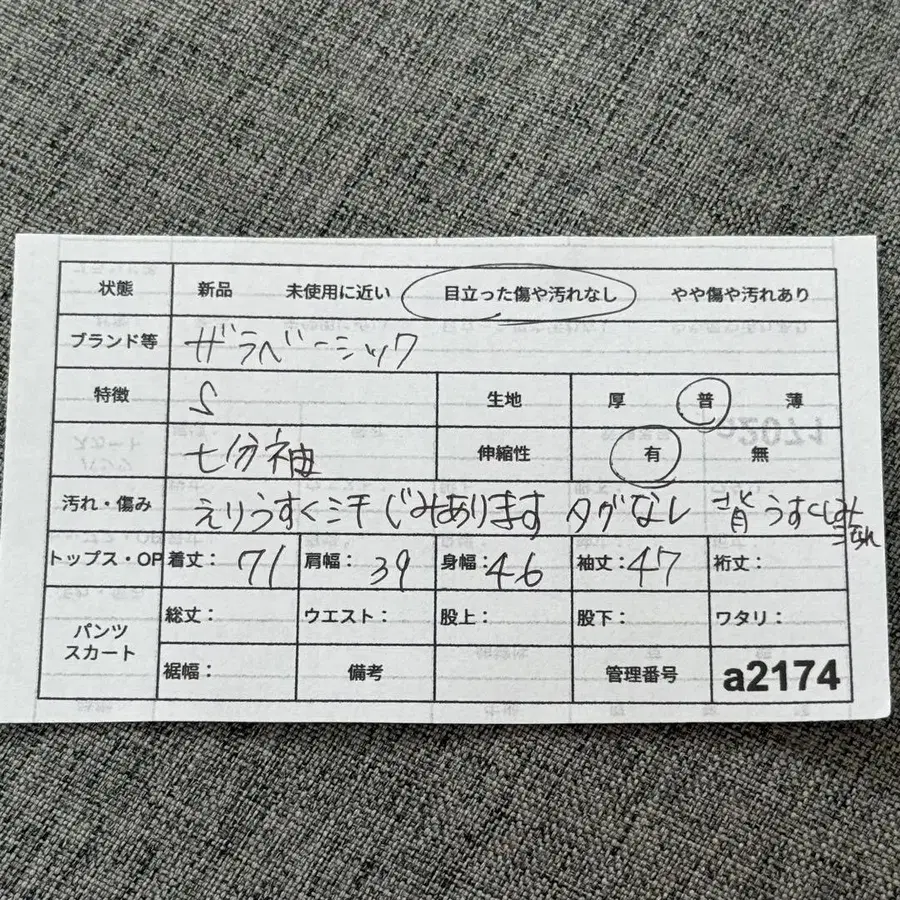 状態 新品 未使用に近い 目立った傷や汚れなし やや傷や汚れあり
ブランド等 ザラベーシック
特徴 S 生地 厚 普 薄
七分袖 伸縮性 有 無
汚れ・傷み えりうすく汗じみあります タグなし 背うすくしみ
トップス・OP 着丈: 71 肩幅: 39 身幅: 46 袖丈: 47 裄丈:
パンツ スカート 総丈: ウエスト: 股上: 股下: ワタリ:
裾幅: 備考 管理番号 a2174